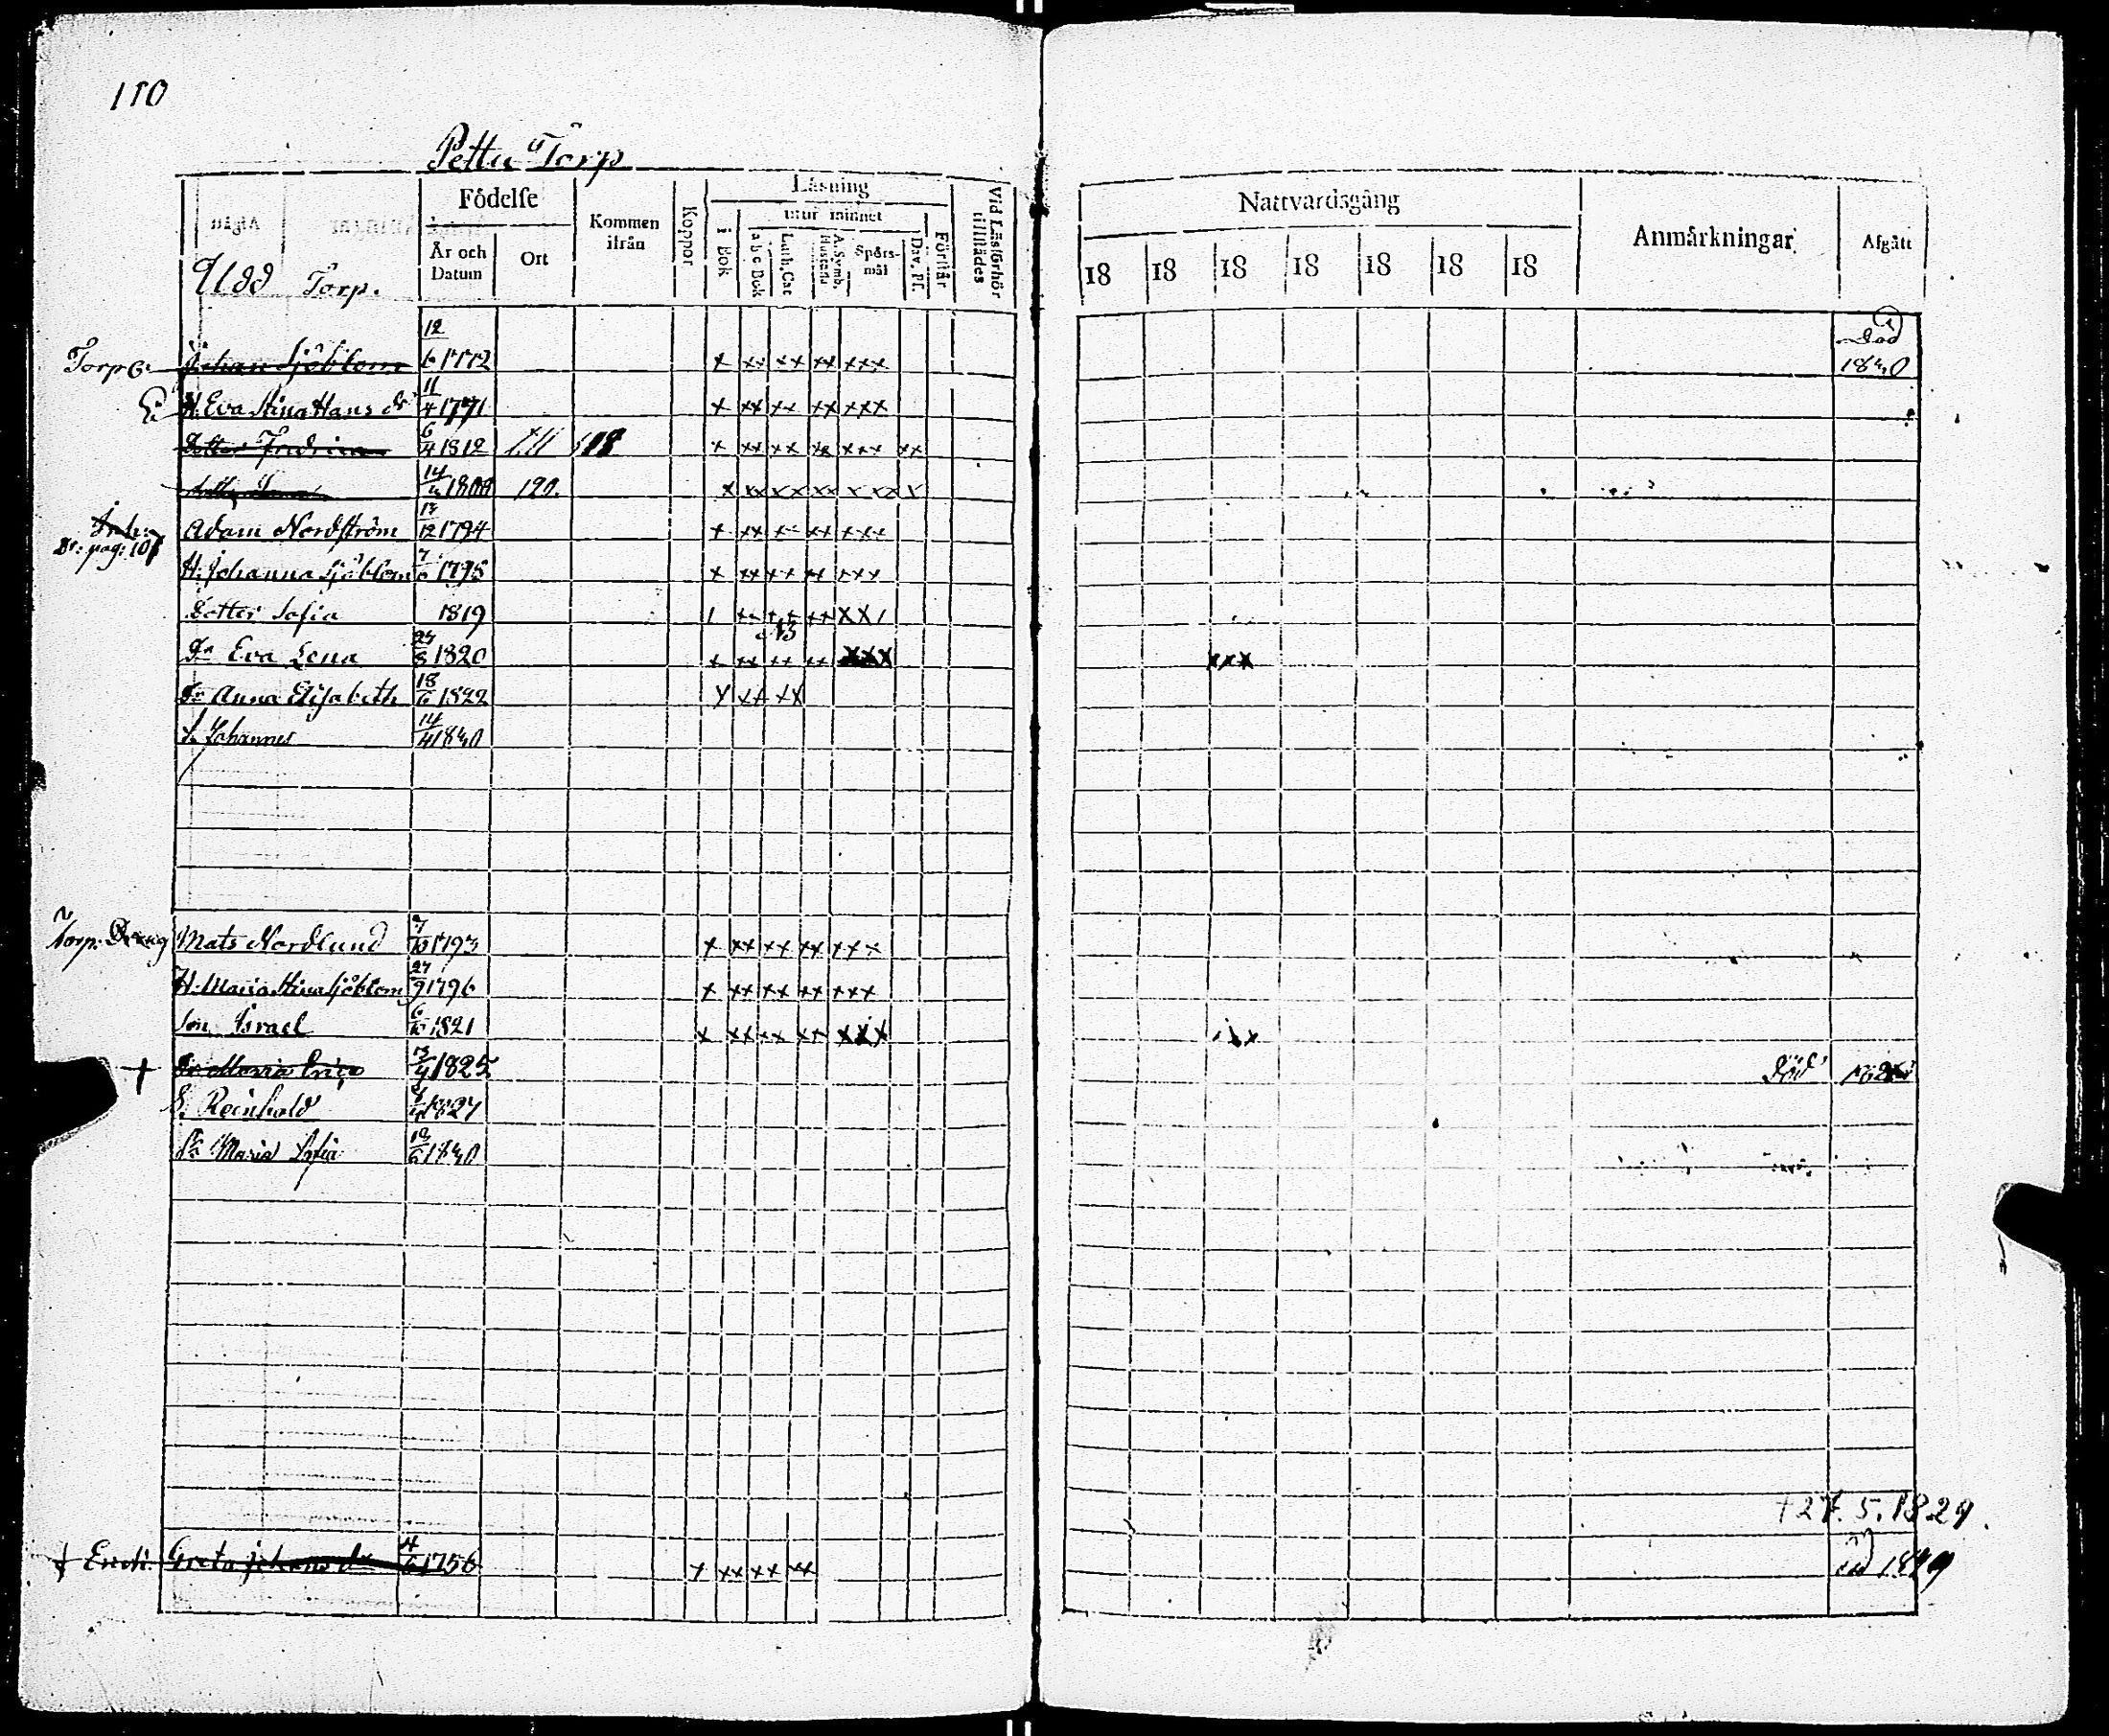 110
Pettu Torp
Födelse
Kommen ifrån
Koppor
Läsning
utur minnet
i Bok
a b c Bok
Luth. Cat
A. Symb. Hustafla
Spörsmål
Dav. Ps.
Förstår
Vid Läsförhör tillstädes
Nattvardsgång
Anmärkningar
Afgått
År och Datum
Ort
Udd Torp.
18 18 18 18 18 18 18
Torp Johan Sjöblom 12/6 1772 x xx xx xx xxx Död 1830
E: H. Eva Stina Hans dr 11/4 1771 x xx xx xx xxx
Dotter Fredrica 6/4 1812 till 118 x xx xx xx xxx xx
14 1808 120. x xx xx xx xxx x
Inh: Adam Nordström 13/12 1794 x xx xx xx xxx
Dr: pag: 107
H. Johanna Sjöblom 7/6 1795 x xx xx xx xxx
Dotter Sofia 1819
Dr Eva Lena 24/8 1820 x xx xx xx xxx xxx
Dr Anna Elisabeth 18/6 1822 x xx xx
S. Johannes 14/4 1830
Torp: Mats Nordlund 7/10 1793 x xx xx xx xxx
H. Maria Stina Sjöblom 27/9 1796 x xx xx xx xxx
Son Israel 6/10 1821 x xx xx xx xxx
+ Dr Maria 13/4 1825 Död
S. Reinhold 8/4 1827
Dr Maria Sofia 13/6 1830
+ 27. 5. 1829.
+ Enk: Greta Johans dr 1756 x xx xx xx 1829